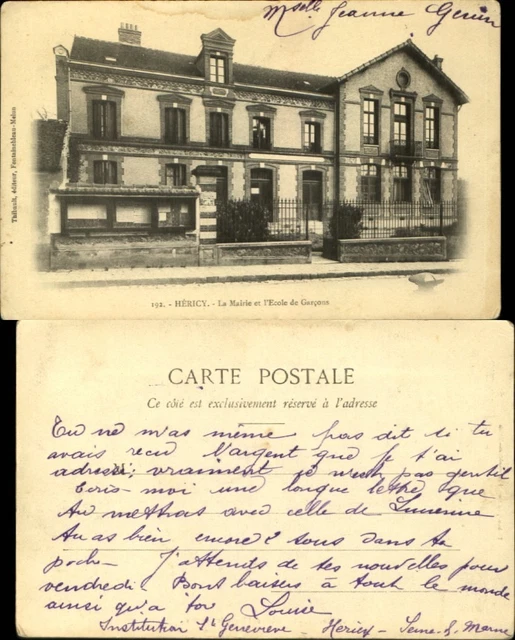 Mselle Jeanne
Thibault, éditeur, Fontainebleau-Melun
192. - HÉRICY. - La Mairie et l'Ecole de Garçons
CARTE POSTALE
Ce côté est exclusivement réservé à l'adresse
Tu ne m'as même pas dit si tu
avais reçu l'argent que je t'ai
adressé; vraiment ce n'est pas gentil
Écris-moi une longue lettre que
tu mettras avec celle de
tu as bien encore 2 sous dans ta
poche - J'attends de tes nouvelles pour
vendredi. Bons baisers à tout le monde
ainsi qu'à toi Louise
Institution Ste Geneviève - Héricy - Seine-&-Marne